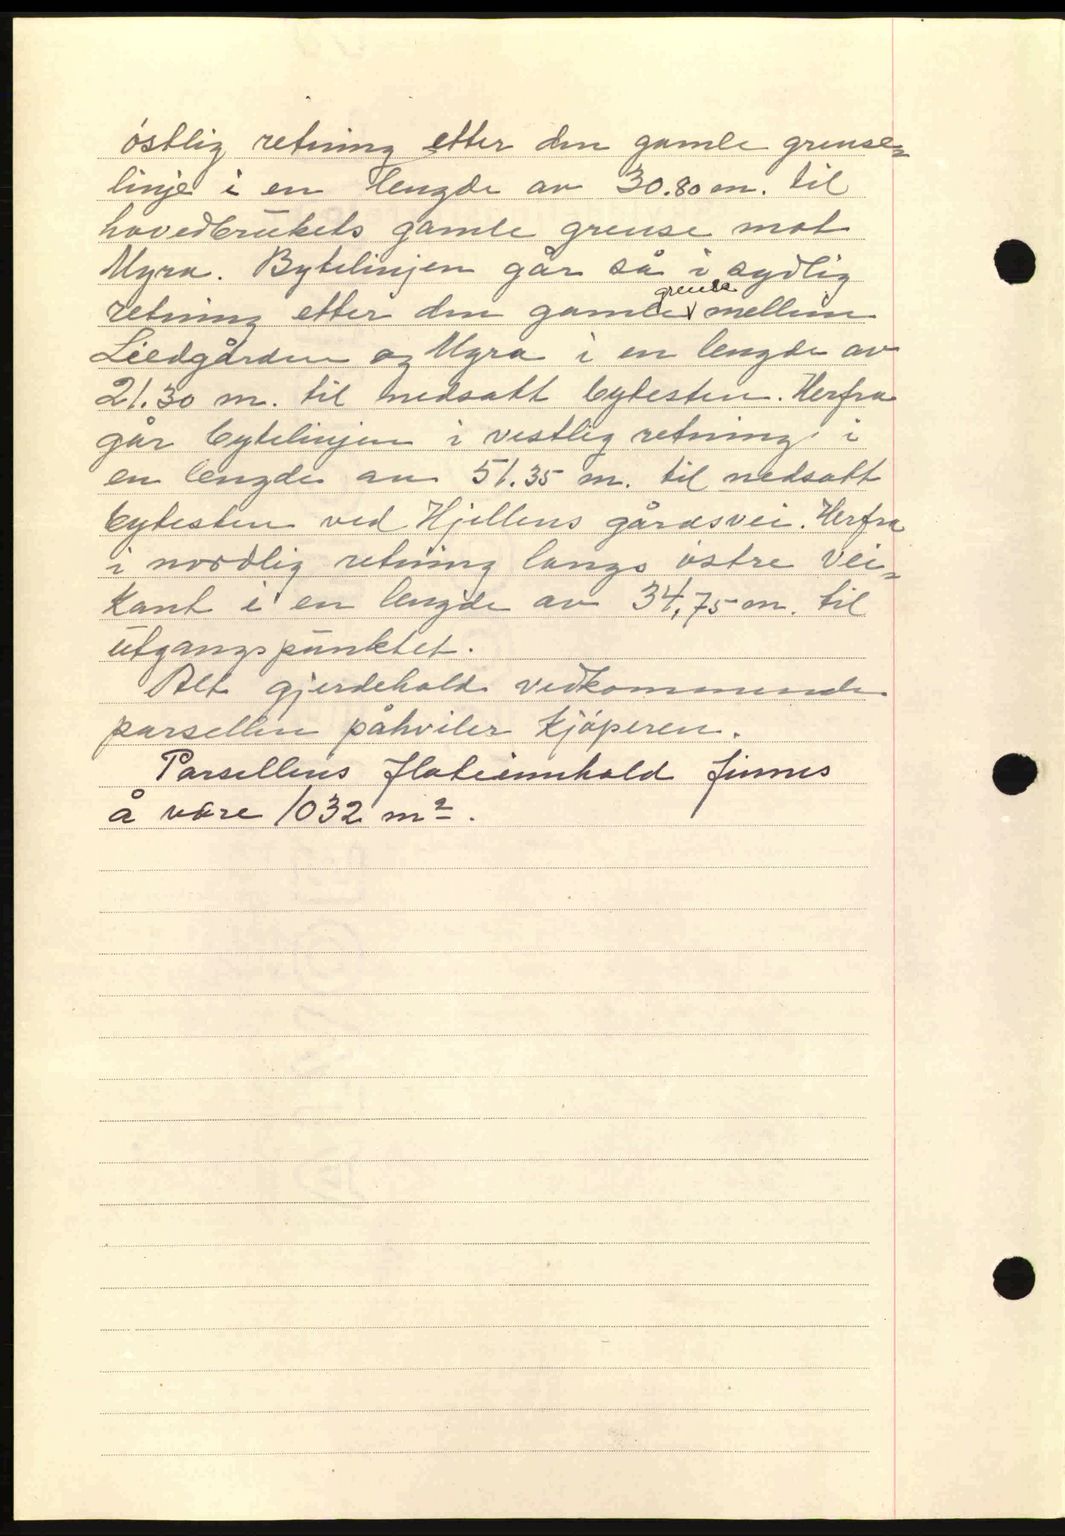 östlig retning etter den gamle grense-
linje i en lengde av 30.80 m. til
hovedbrukets gamle grense mot
Myra. Bytelinjen går så i sydlig
retning etter den gamle grense mellem
Liedgården og Myra i en lengde av
21.30 m. til nedsatt bytesten. Herfra
går bytelinjen i vestlig retning i
en lengde av 51.35 m. til nedsatt
bytesten ved Hjellens gårdsvei. Herfra
i nordlig retning langs östre vei-
kant i en lengde av 34,75 m. til
utgangspunktet.
Alt gjerdehold vedkommende
parsellen påhviler kjöperen.
Parsellens flateinnhold finnes
å være 1032 m².